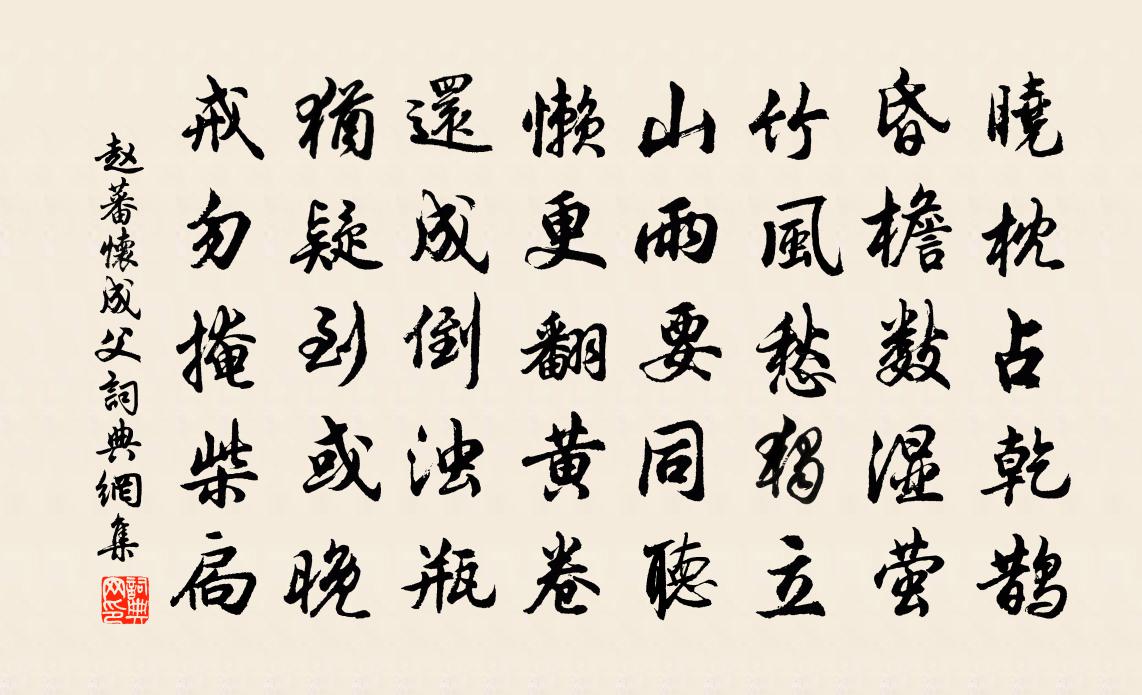 曉枕占乾鵲
昏檐數湿萤
竹風愁獨立
山雨要同聽
懶更翻黄卷
還成倒浊瓶
猶疑到或晚
戒勿掩柴扃
赵蕃懷成父詞典網集